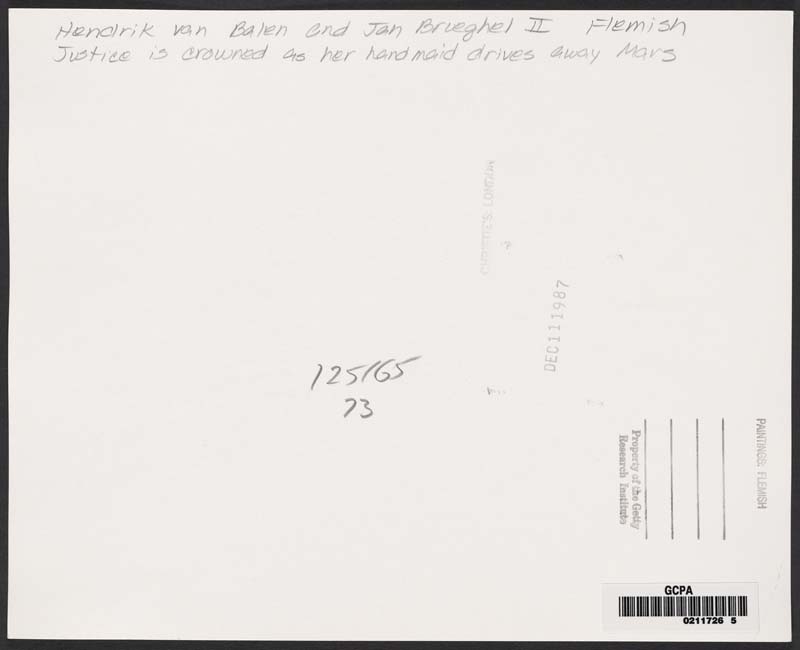 Hendrik van Balen and Jan Brueghel II Flemish
Justice is crowned as her handmaid drives away Mars
CHRISTIE'S, LONDON
DEC 11 1987
125165
73
PAINTINGS: FLEMISH
Property of the Getty
Research Institute
GCPA
0211726 5